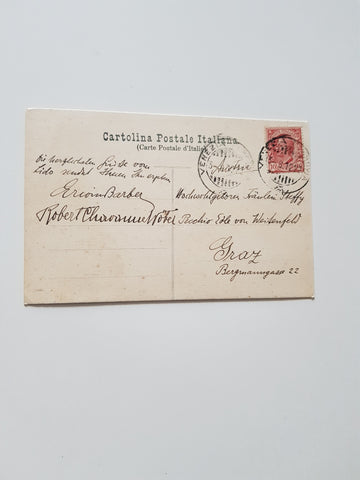 Cartolina Postale Italiana
(Carte Postale d'Italie)
Die herzlichsten Grüsse vom
Lido sendet Ihnen Ihr ergeben
Erwin Barber
Robert Chavanne
VENEZIA
Austria
Hochwohlgeboren Fräulein Steffy
Pecchio Edle von Weitenfeld
Graz
Bergmanngasse 22